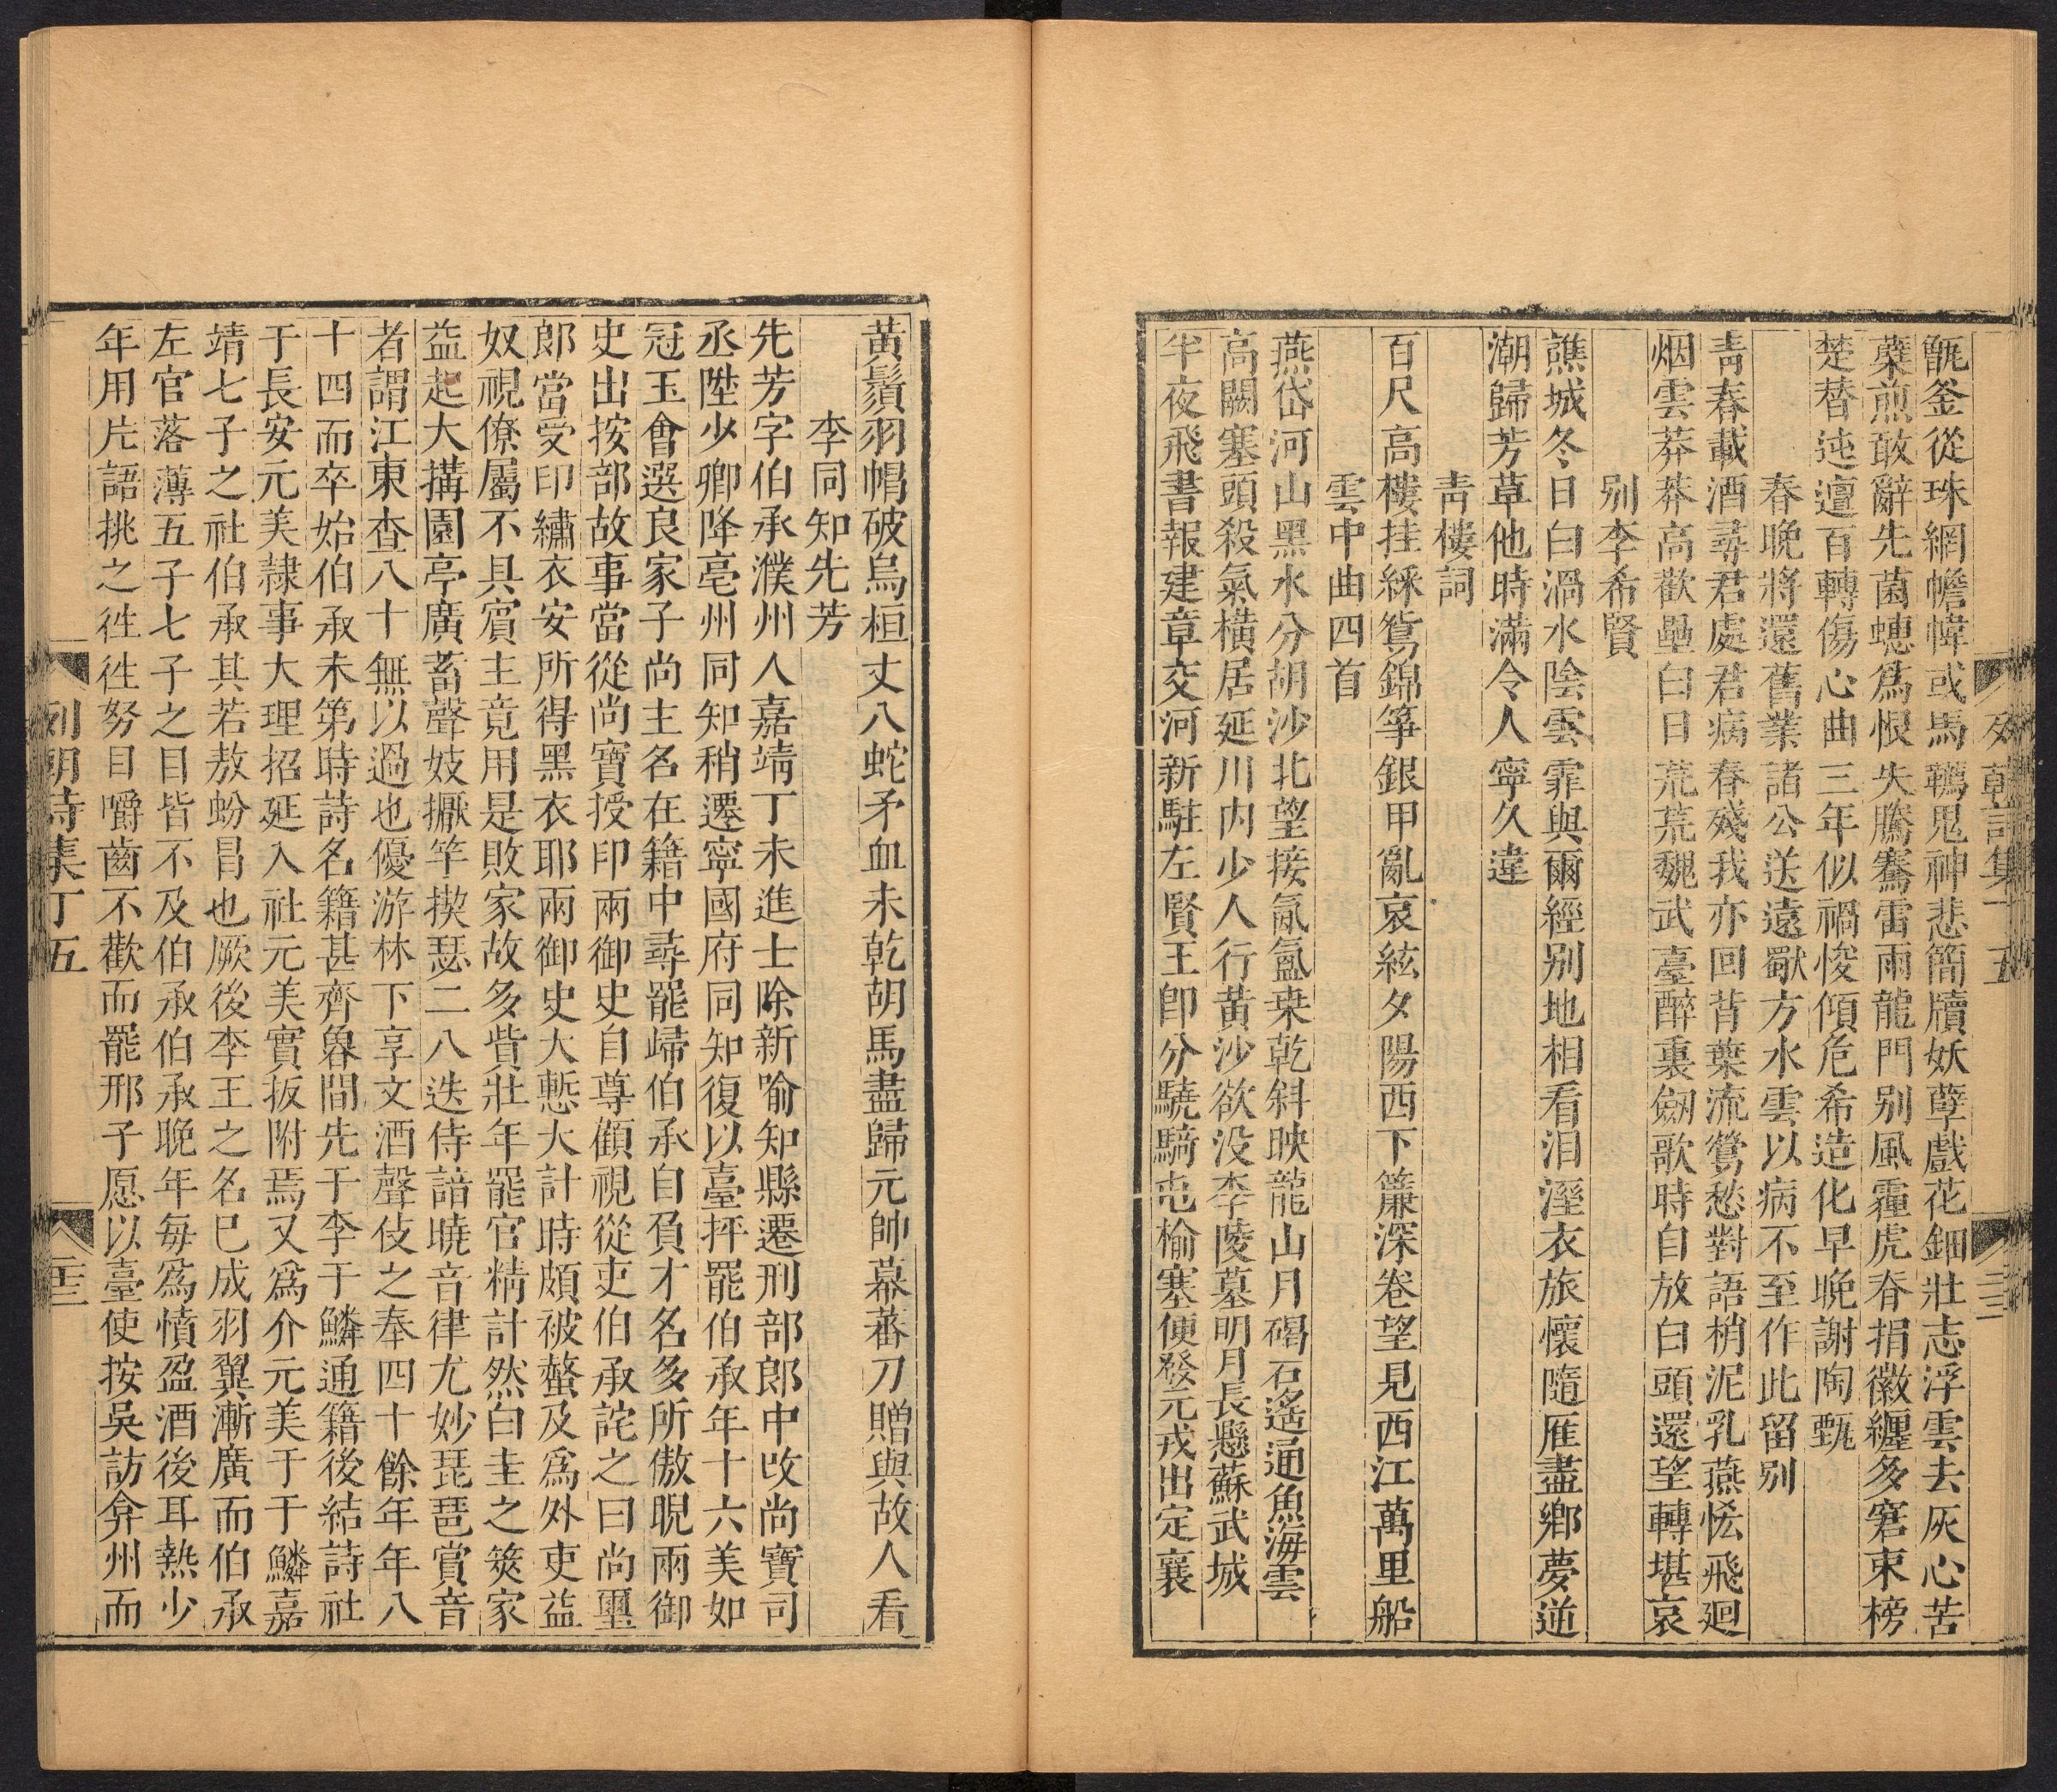 甑釜從珠網幨幃或馬韉鬼神悲簡牘妖孽戲花鈿壯志浮雲去灰心苦
蘗煎敢辭先菌蟪爲恨失騰騫雷雨龍門别風霾虎脊捐徽纏多窘束榜
楚替迍邅百轉傷心曲三年似禍悛傾危希造化早晚謝陶甄
春晚將還舊業諸公送遠歇方水雲以病不至作此留别
靑春載酒尋君處君病春殘我亦回背葉流鶯愁對語梢泥乳燕恡飛廻
烟雲莽莽高歡壘白日荒荒魏武臺醉裏劔歌時自放白頭還望轉堪哀
别李希賢
譙城冬日白渦水陰雲霏與爾經别地相看泪溼衣旅懷隨雁盡鄉夢逆
潮歸芳草他時滿令人寧久違
靑樓詞
百尺高樓挂綵鴛錦筝銀甲亂哀絃夕陽西下簾深卷望見西江萬里船
雲中曲四首
燕岱河山黑水分胡沙北望接氤氳桒乾斜映龍山月碣石遙通魚海雲
高闕塞頭殺氣橫居延川內少人行黃沙欲没李陵墓明月長懸蘇武城
半夜飛書報建章交河新駐左賢王卽分驍騎屯楡塞便發元戎出定襄
列朝詩集丁五
黃鬚羽帽破烏桓丈八蛇矛血未乾胡馬盡歸元帥幕蕃刀贈與故人看
李同知先芳
先芳字伯承濮州人嘉靖丁未進士除新喻知縣遷刑部郎中改尚寶司
丞陞少卿降亳州同知稍遷寧國府同知復以臺抨罷伯承年十六美如
冠玉會選良家子尚主名在籍中尋罷歸伯承自負才名多所傲睨兩御
史出按部故事當從尚寶授印兩御史自尊顧視從吏伯承詫之曰尚璽
郎當受印繡衣安所得黑衣耶兩御史大慙大計時頗被螫及爲外吏益
奴視僚屬不具賓主竟用是敗家故多貲壯年罷官精計然白圭之筴家
益起大搆園亭廣蓄聲妓擫竽揳瑟二八迭侍諳曉音律尤妙琵琶賞音
者謂江東查八十無以過也優游林下享文酒聲伎之奉四十餘年年八
十四而卒始伯承未第時詩名籍甚齊魯間先于李于鱗通籍後結詩社
于長安元美隷事大理招延入社元美實扳附焉又爲介元美于于鱗嘉
靖七子之社伯承其若敖蚡冒也厥後李王之名巳成羽翼漸廣而伯承
左官落薄五子七子之目皆不及伯承伯承晚年每爲憤盈酒後耳熱少
年用片語挑之徃徃努目嚼齒不歡而罷邢子愿以臺使按吳訪弇州而
列朝詩集丁五